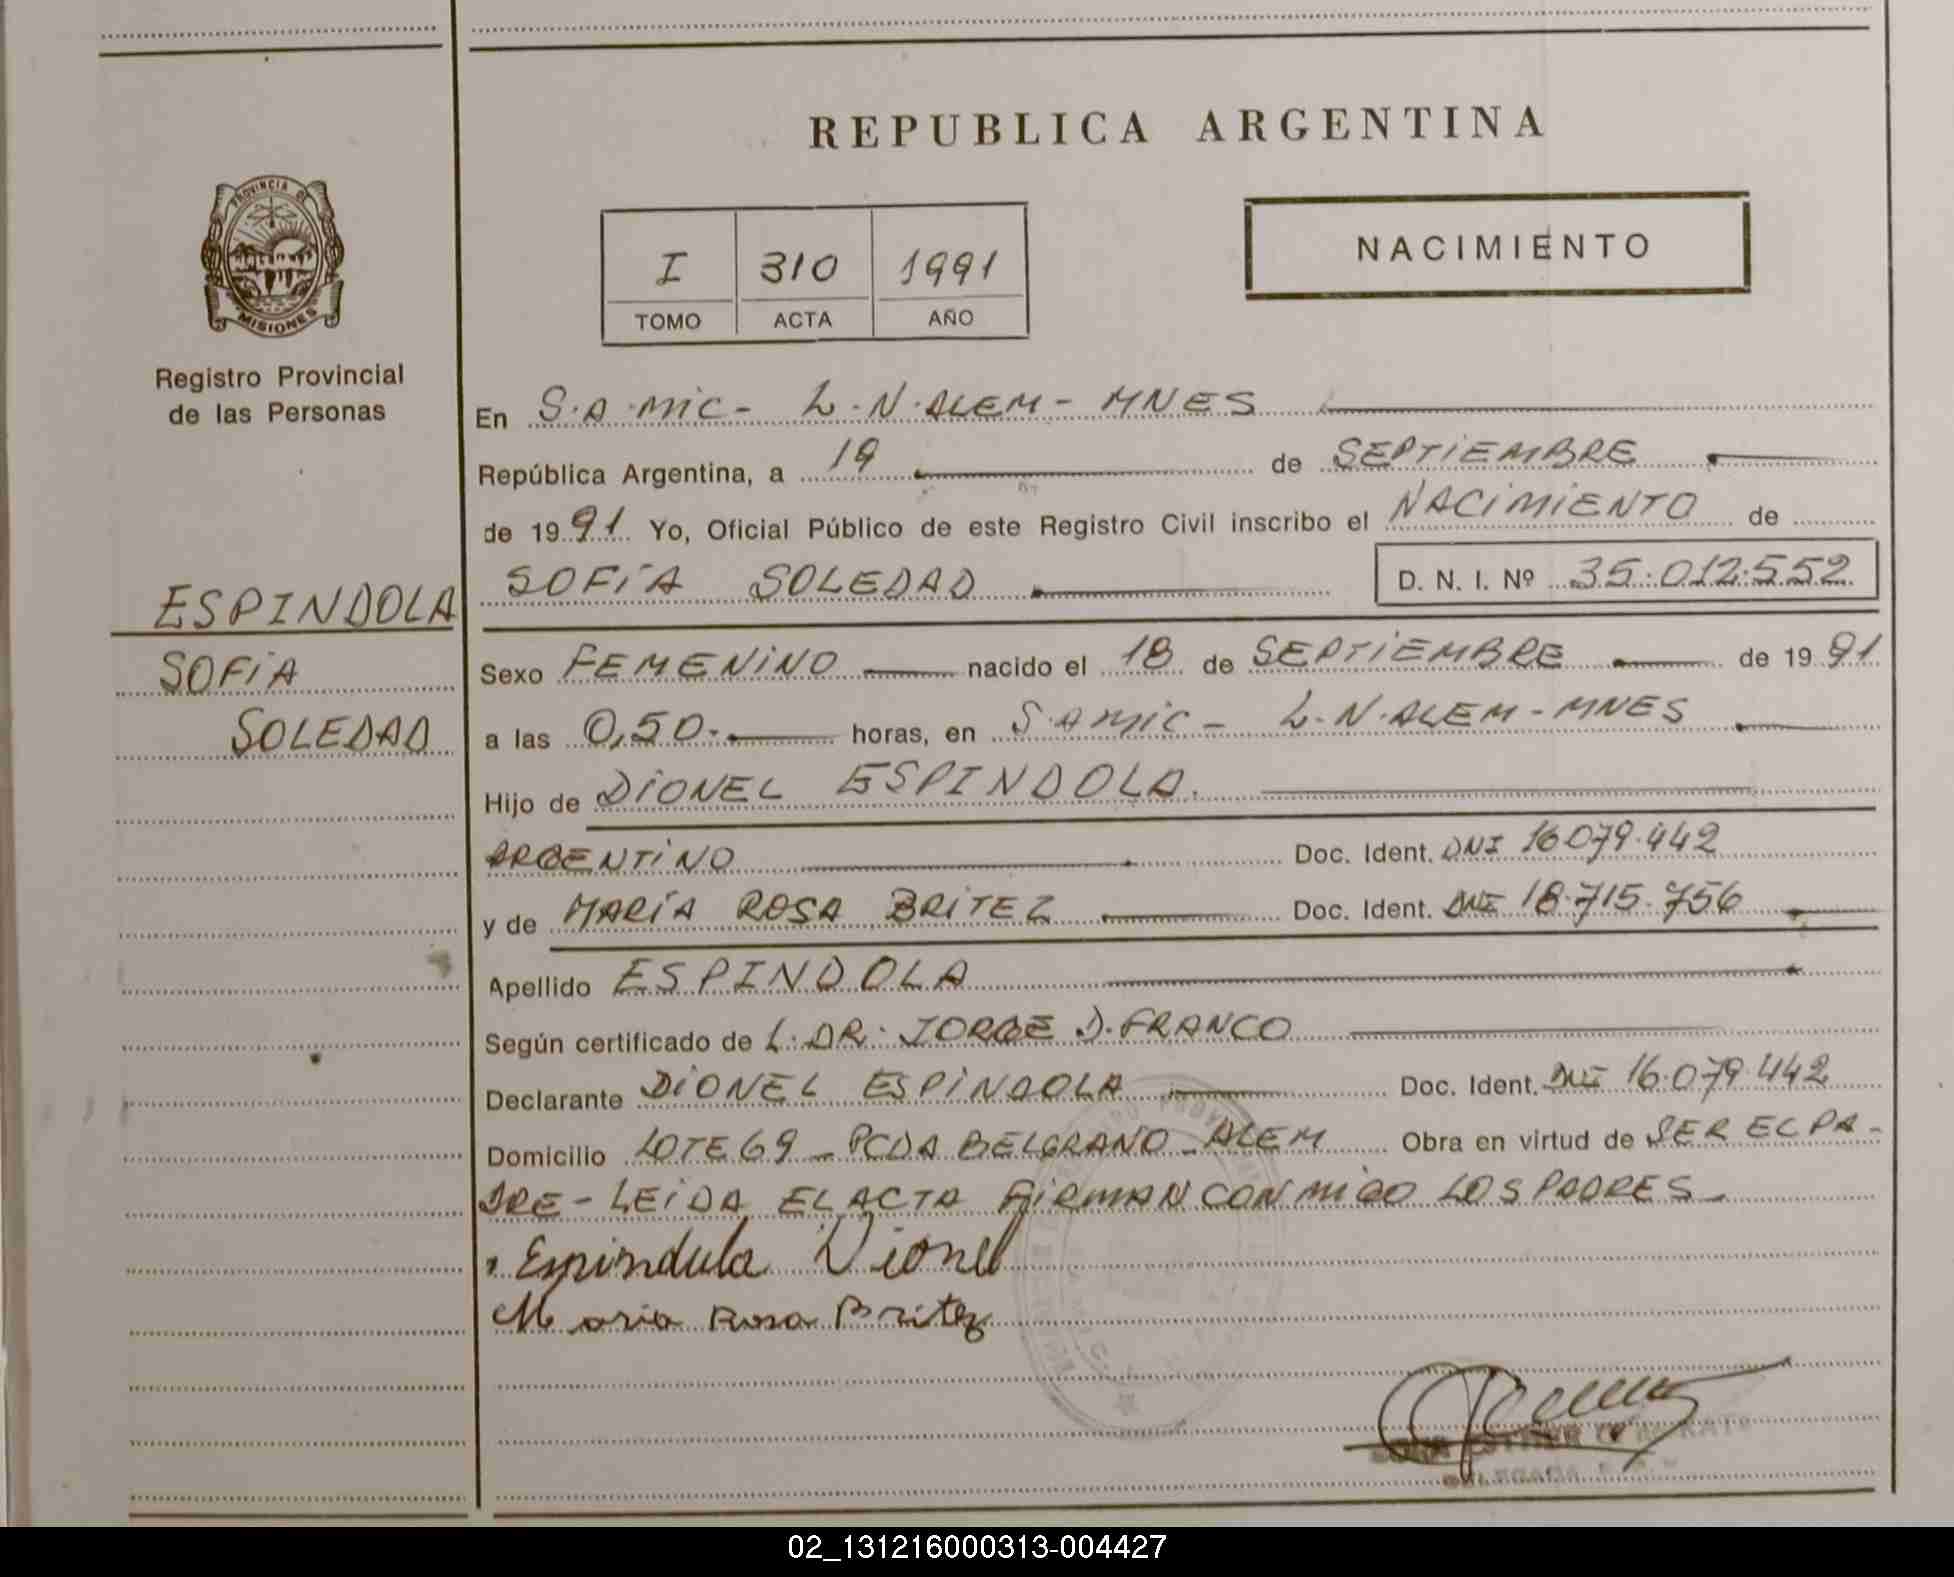 REPUBLICA ARGENTINA
PROVINCIA DE
MISIONES
Registro Provincial
de las Personas
I 310 1991
TOMO ACTA AÑO
NACIMIENTO
En S.A.MIC- L.N.ALEM-MNES
República Argentina, a 19 de SEPTIEMBRE
de 1991 Yo, Oficial Público de este Registro Civil inscribo el NACIMIENTO de
ESPINDOLA
SOFÍA
SOLEDAD
SOFÍA SOLEDAD D. N. I. Nº 35.012.552
Sexo FEMENINO nacido el 18 de SEPTIEMBRE de 1991
a las 0,50.- horas, en S.AMIC- L.N.ALEM-MNES
Hijo de DIONEL ESPINDOLA.
ARGENTINO Doc. Ident. DNI 16.079.442
y de MARÍA ROSA BRITEZ Doc. Ident. DNI 18.715.756
Apellido ESPINDOLA
Según certificado de L. DR. JORGE D. FRANCO
Declarante DIONEL ESPINDOLA Doc. Ident. DNI 16.079.442
Domicilio LOTE 69-PCDA BELGRANO-ALEM Obra en virtud de SER EL PA-
DRE-LEIDA EL ACTA FIRMAN CONMIGO LOS PADRES-
Espindula Dionel
Maria Rosa Britez
02_131216000313-004427